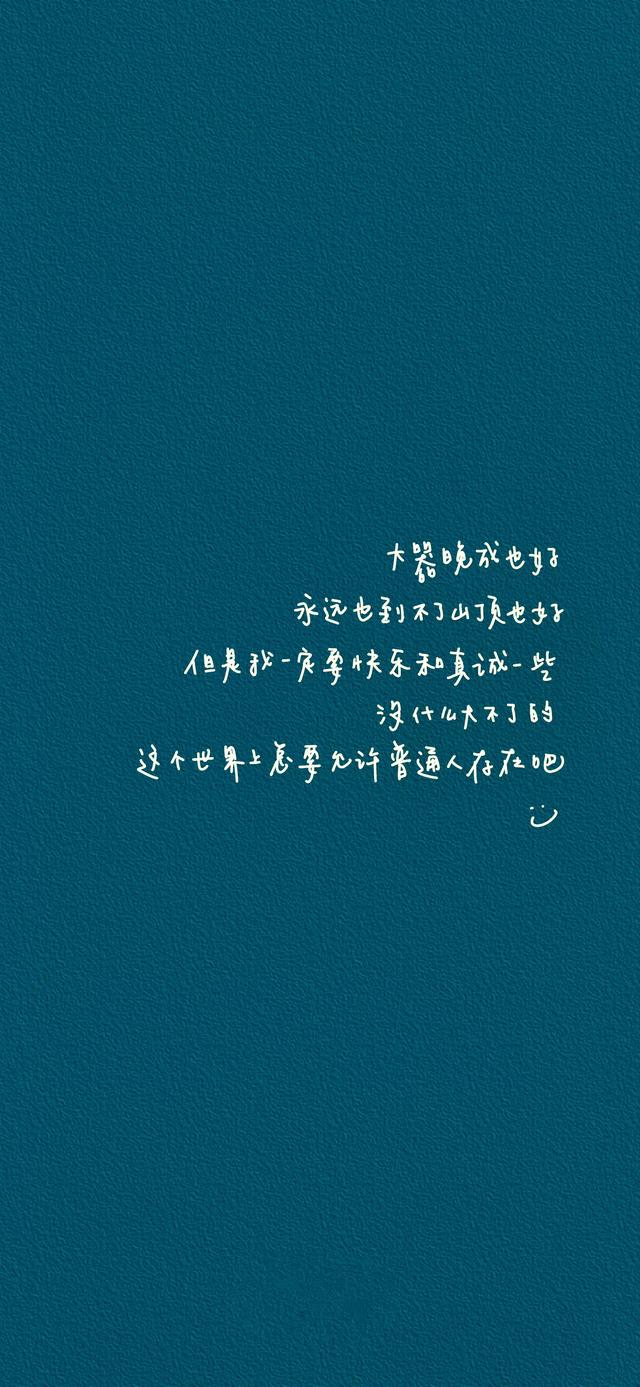 大器晚成也好
永远也到不了山顶也好
但是我一定要快乐和真诚一些
没什么大不了的
这个世界上总要允许普通人存在吧